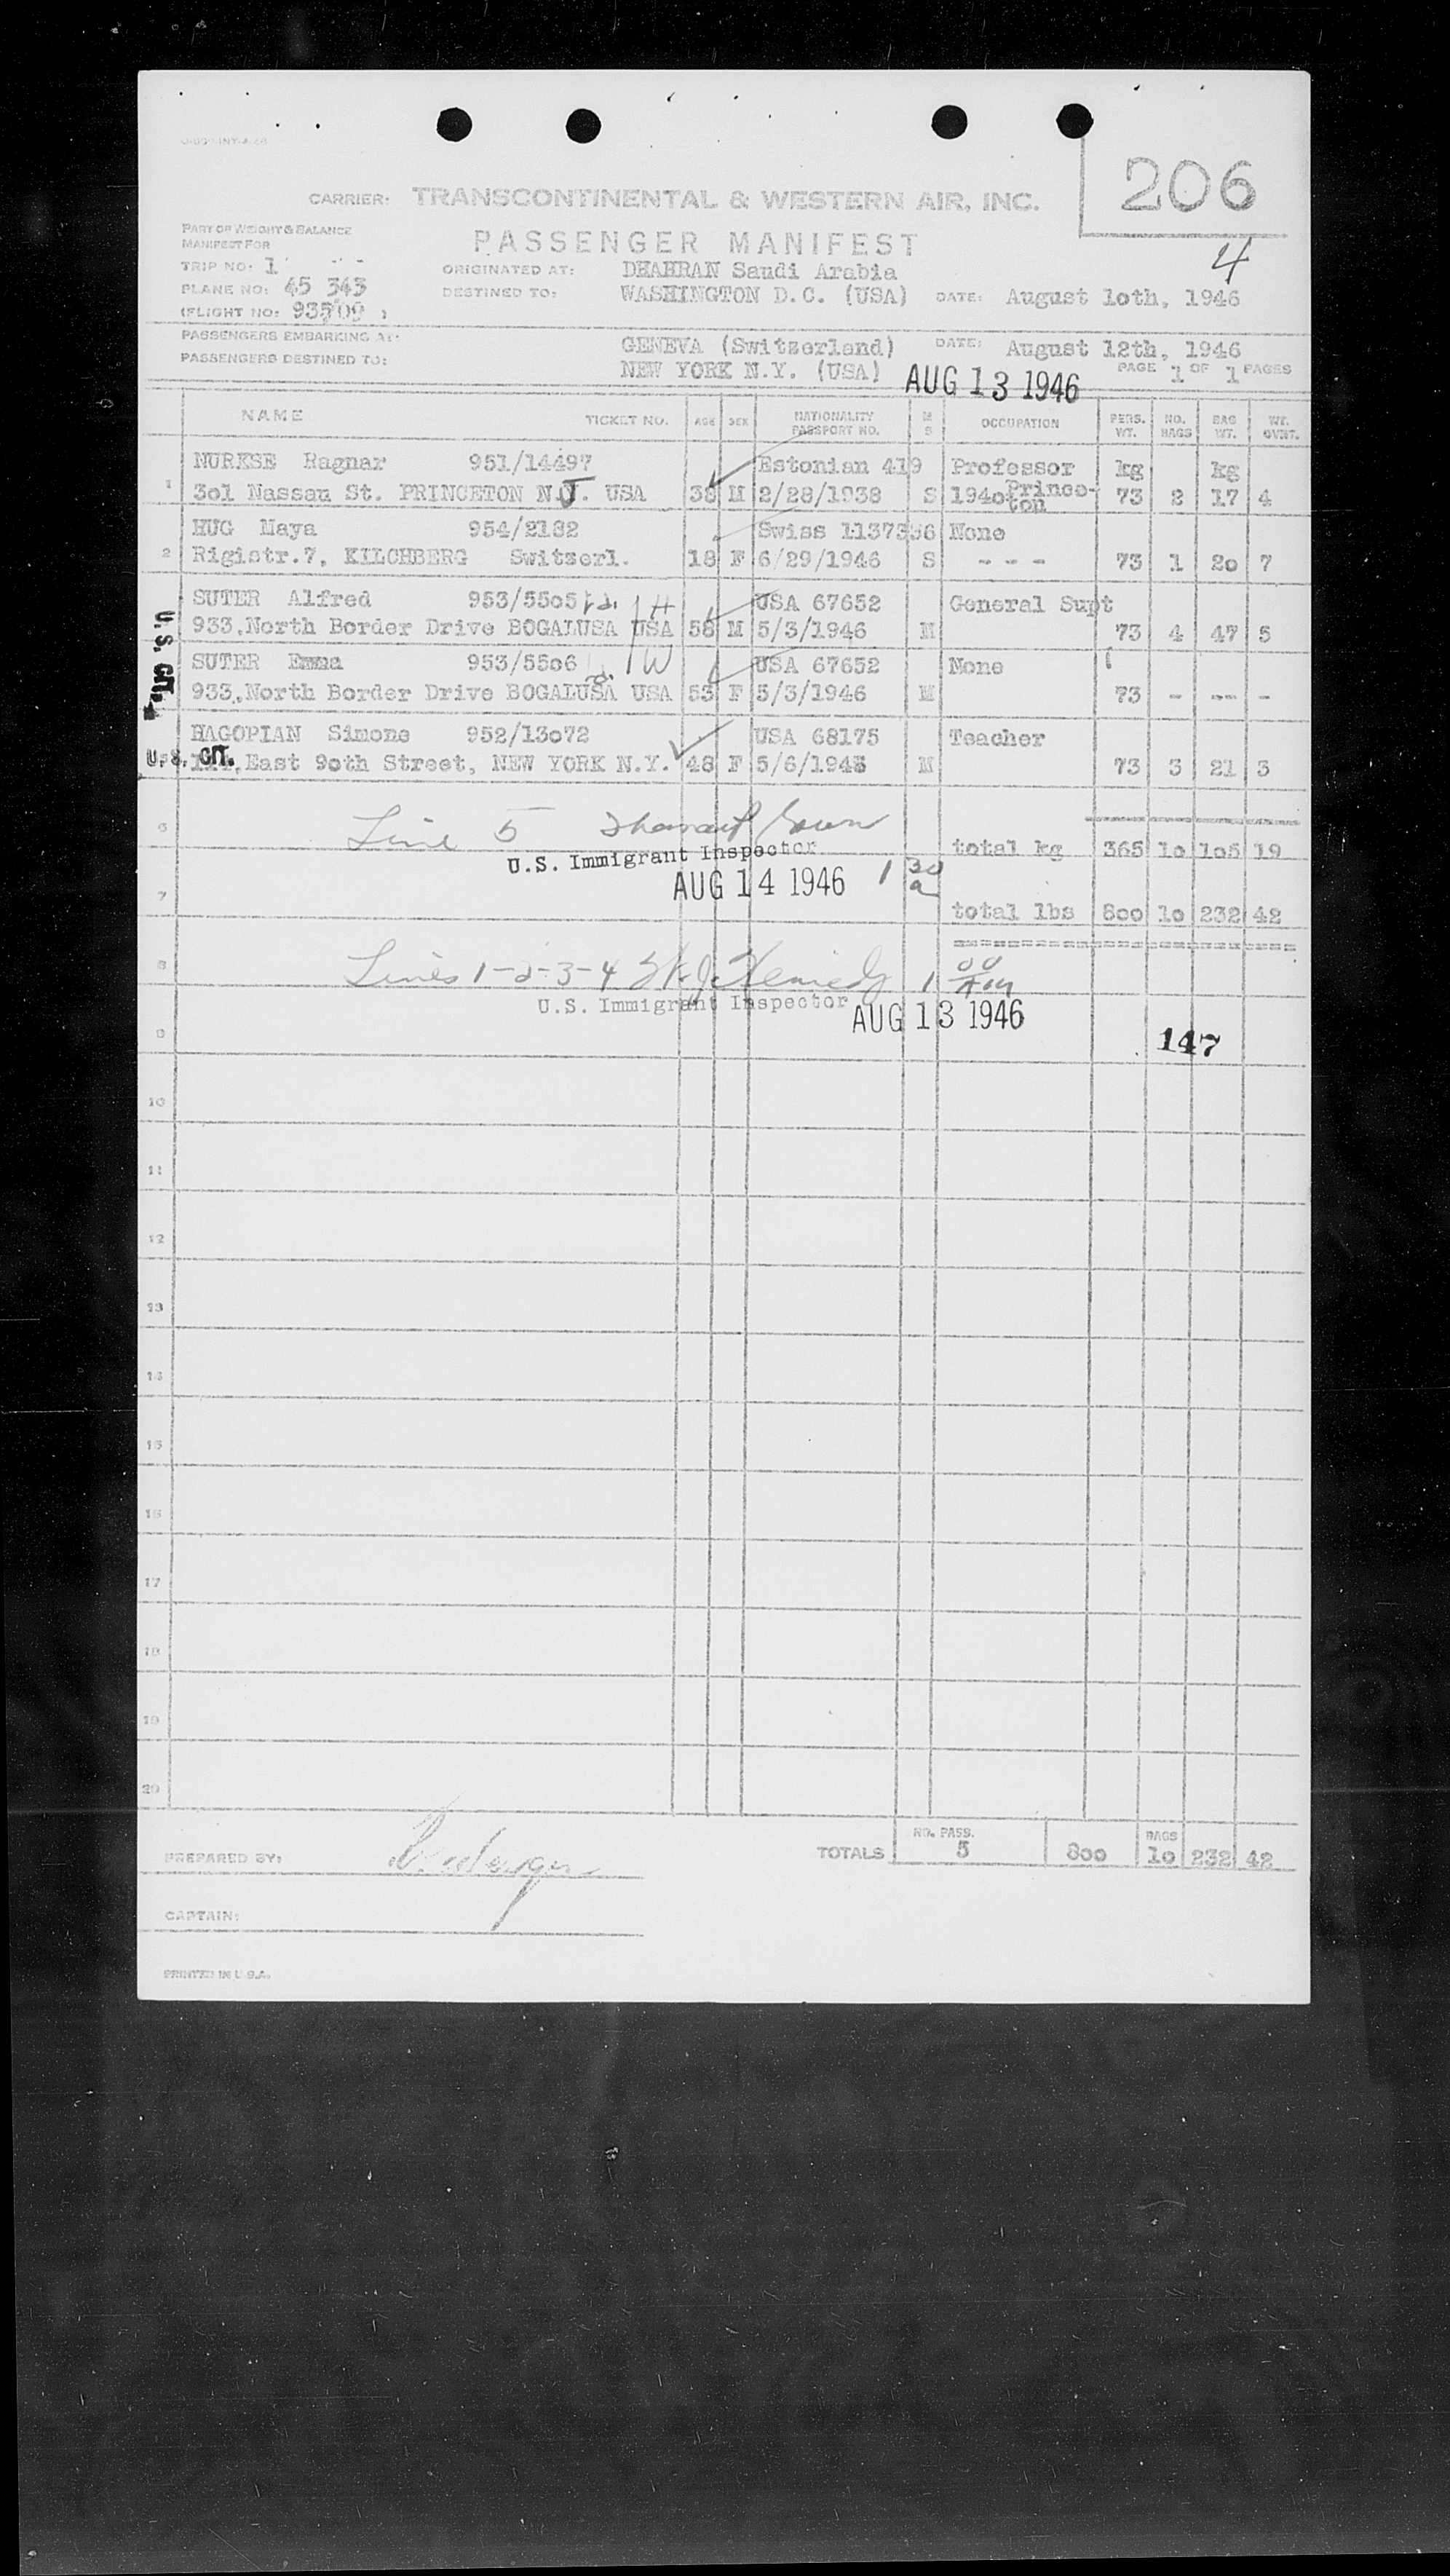 206
CARRIER: TRANSCONTINENTAL & WESTERN AIR, INC.
PART OF WEIGHT & BALANCE
MANIFEST FOR
PASSENGER MANIFEST
4
TRIP NO: 1
ORIGINATED AT: DHAHRAN Saudi Arabia
PLANE NO: 45 343
DESTINED TO: WASHINGTON D.C. (USA) DATE: August 1oth, 1946
(FLIGHT NO:
PASSENGERS EMBARKING AT: GENEVA (Switzerland) DATE: August 12th, 1946
PASSENGERS DESTINED TO: NEW YORK N.Y. (USA) AUG 13 1946 PAGE 1 OF 1 PAGES
NAME TICKET NO. AGE SEX NATIONALITY PASSPORT NO. M S OCCUPATION PERS. WT. NO. BAGS BAG WT. WT. OVWT.
NURKSE Ragnar 951/14497 Estonian 419 Professor kg kg
1 3o1 Nassau St. PRINCETON N.J. USA 38 M 2/28/1938 S 194o Prince-ton 73 2 17 4
HUG Maya 954/2182 Swiss 1137356 None
2 Rigistr.7, KILCHBERG Switzerl. 18 F 6/29/1946 S - - - 73 1 2o 7
SUTER Alfred 953/55o5 H USA 67652 General Supt
933,North Border Drive BOGALUSA USA 58 M 5/3/1946 M 73 4 47 5
SUTER Emma 953/55o6 W USA 67652 None
933,North Border Drive BOGALUSA USA 53 F 5/3/1946 M 73 - -- -
U.S. CIT.
HAGOPIAN Simone 952/13o72 USA 68175 Teacher
U.S. CIT. East 9oth Street, NEW YORK N.Y. 48 F 5/6/1946 M 73 3 21 3
6 Line 5
total kg 365 1o 1o5 19
U.S. Immigrant Inspector
AUG 14 1946 1 30 a
7
total lbs 8oo 1o 232 42
8 Lines 1-2-3-4 1 00
U.S. Immigrant Inspector
AUG 13 1946
9
147
10
11
12
13
14
15
16
17
18
19
20
PREPARED BY:
TOTALS NO. PASS. 5 8oo BAGS 1o 232 42
CAPTAIN:
PRINTED IN U.S.A.